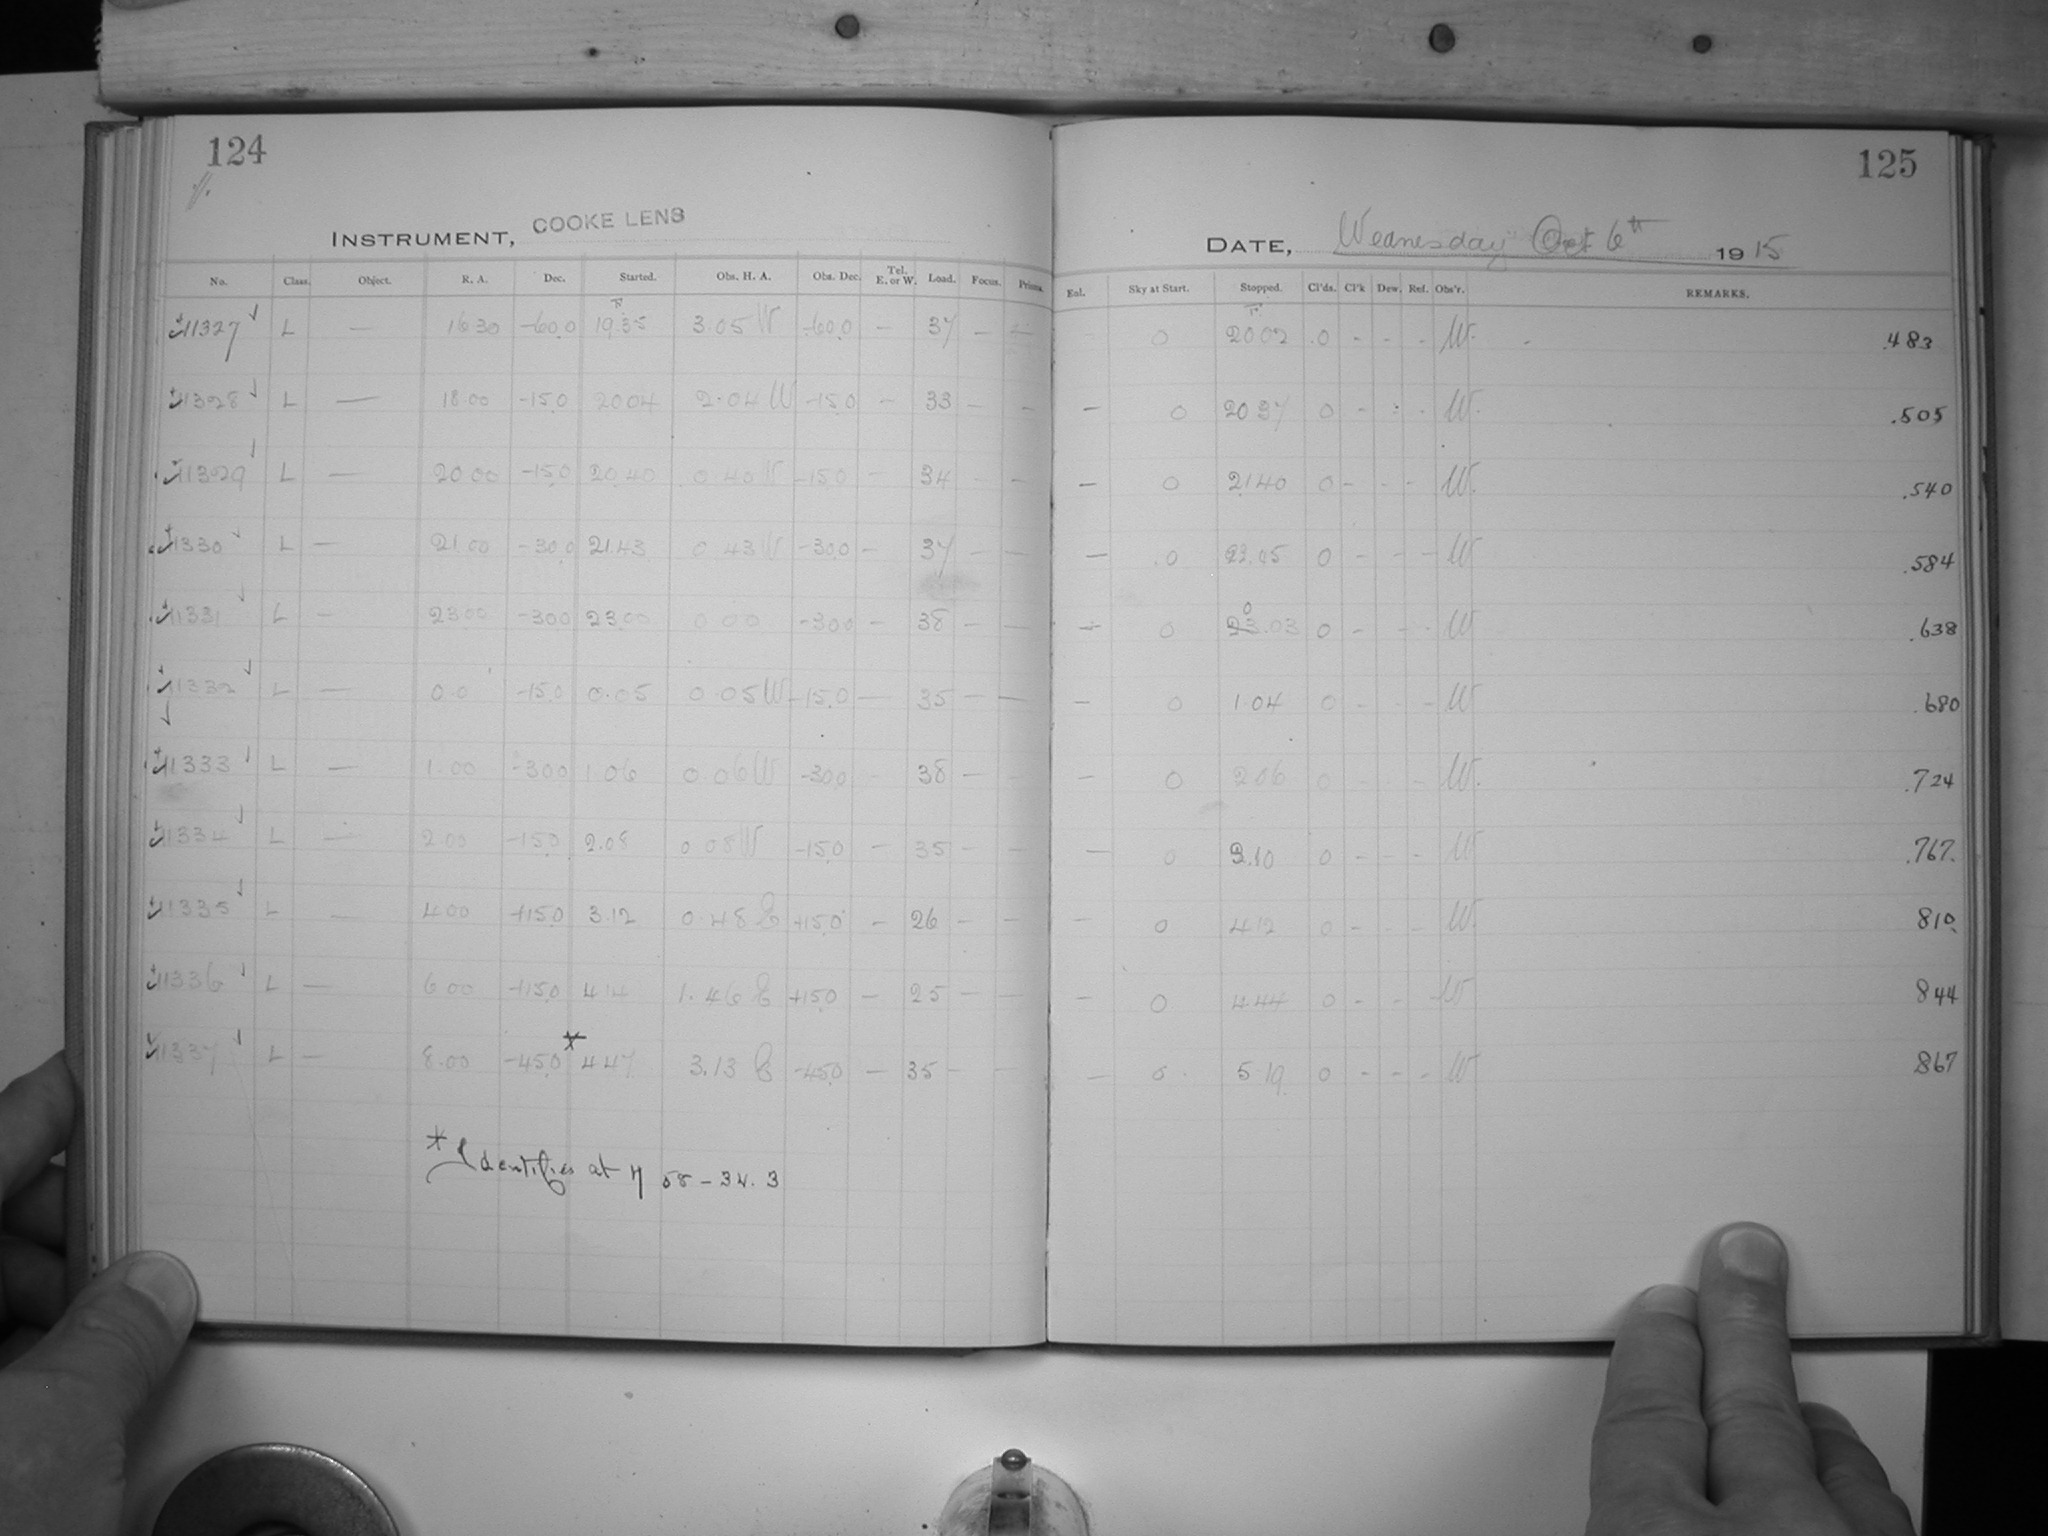 124
125
INSTRUMENT, COOKE LENS
DATE, Wednesday Oct 6th 1915
No. Class. Object. R. A. Dec. Started. Obs. H. A. Obs. Dec. Tel. E. or W. Load. Focus. Prisms. Eol. Sky at Start. Stopped. Cl'ds. Cl'k Dew. Ref. Obs'r. REMARKS.
11327 L — 16 30 -60.0 19.35 3.05 W -60.0 - 37 - - 0 20 02 0 - - - W. .483
11328 L — 18.00 -15.0 20 04 2.04 W -15.0 - 33 - - - 0 20 37 0 - - - W. .505
11329 L — 20 00 -15.0 20.40 0 40 W -15.0 - 34 - - - 0 21 40 0 - - - W. .540
11330 L — 21.00 -30.0 21.43 0 43 W -30.0 - 37 - - - 0 0 - - - W .584
11331 L - 23.00 -30.0 23.00 0 00 -30.0 - 38 - - - 0 0 - - - W .638
11332 L — 0.0 -15.0 0.05 0 05 W -15.0 - 35 - - - 0 1.04 0 - - - W .680
11333 L — 1.00 -30.0 1 06 0 06 W -30.0 - 38 - - - 0 2 06 0 - - - W. .724
11334 L — 2.00 -15.0 2.08 0 08 W -15.0 - 35 - - - 0 0 - - - W .767.
11335 L — 4.00 +15.0 3.12 0.48 E +15.0 - 26 - - - 0 4 12 0 - - - W. 810
11336 L — 6 00 +15.0 4 14 1.46 E +15.0 - 25 - - - 0 4 44 0 - - - W 844
11337 L — 8.00 -45.0 * 4 47 3.13 E -45.0 - 35 - - - 0 5 19 0 - - - W 867
* Identifies at 7 58 - 34.3